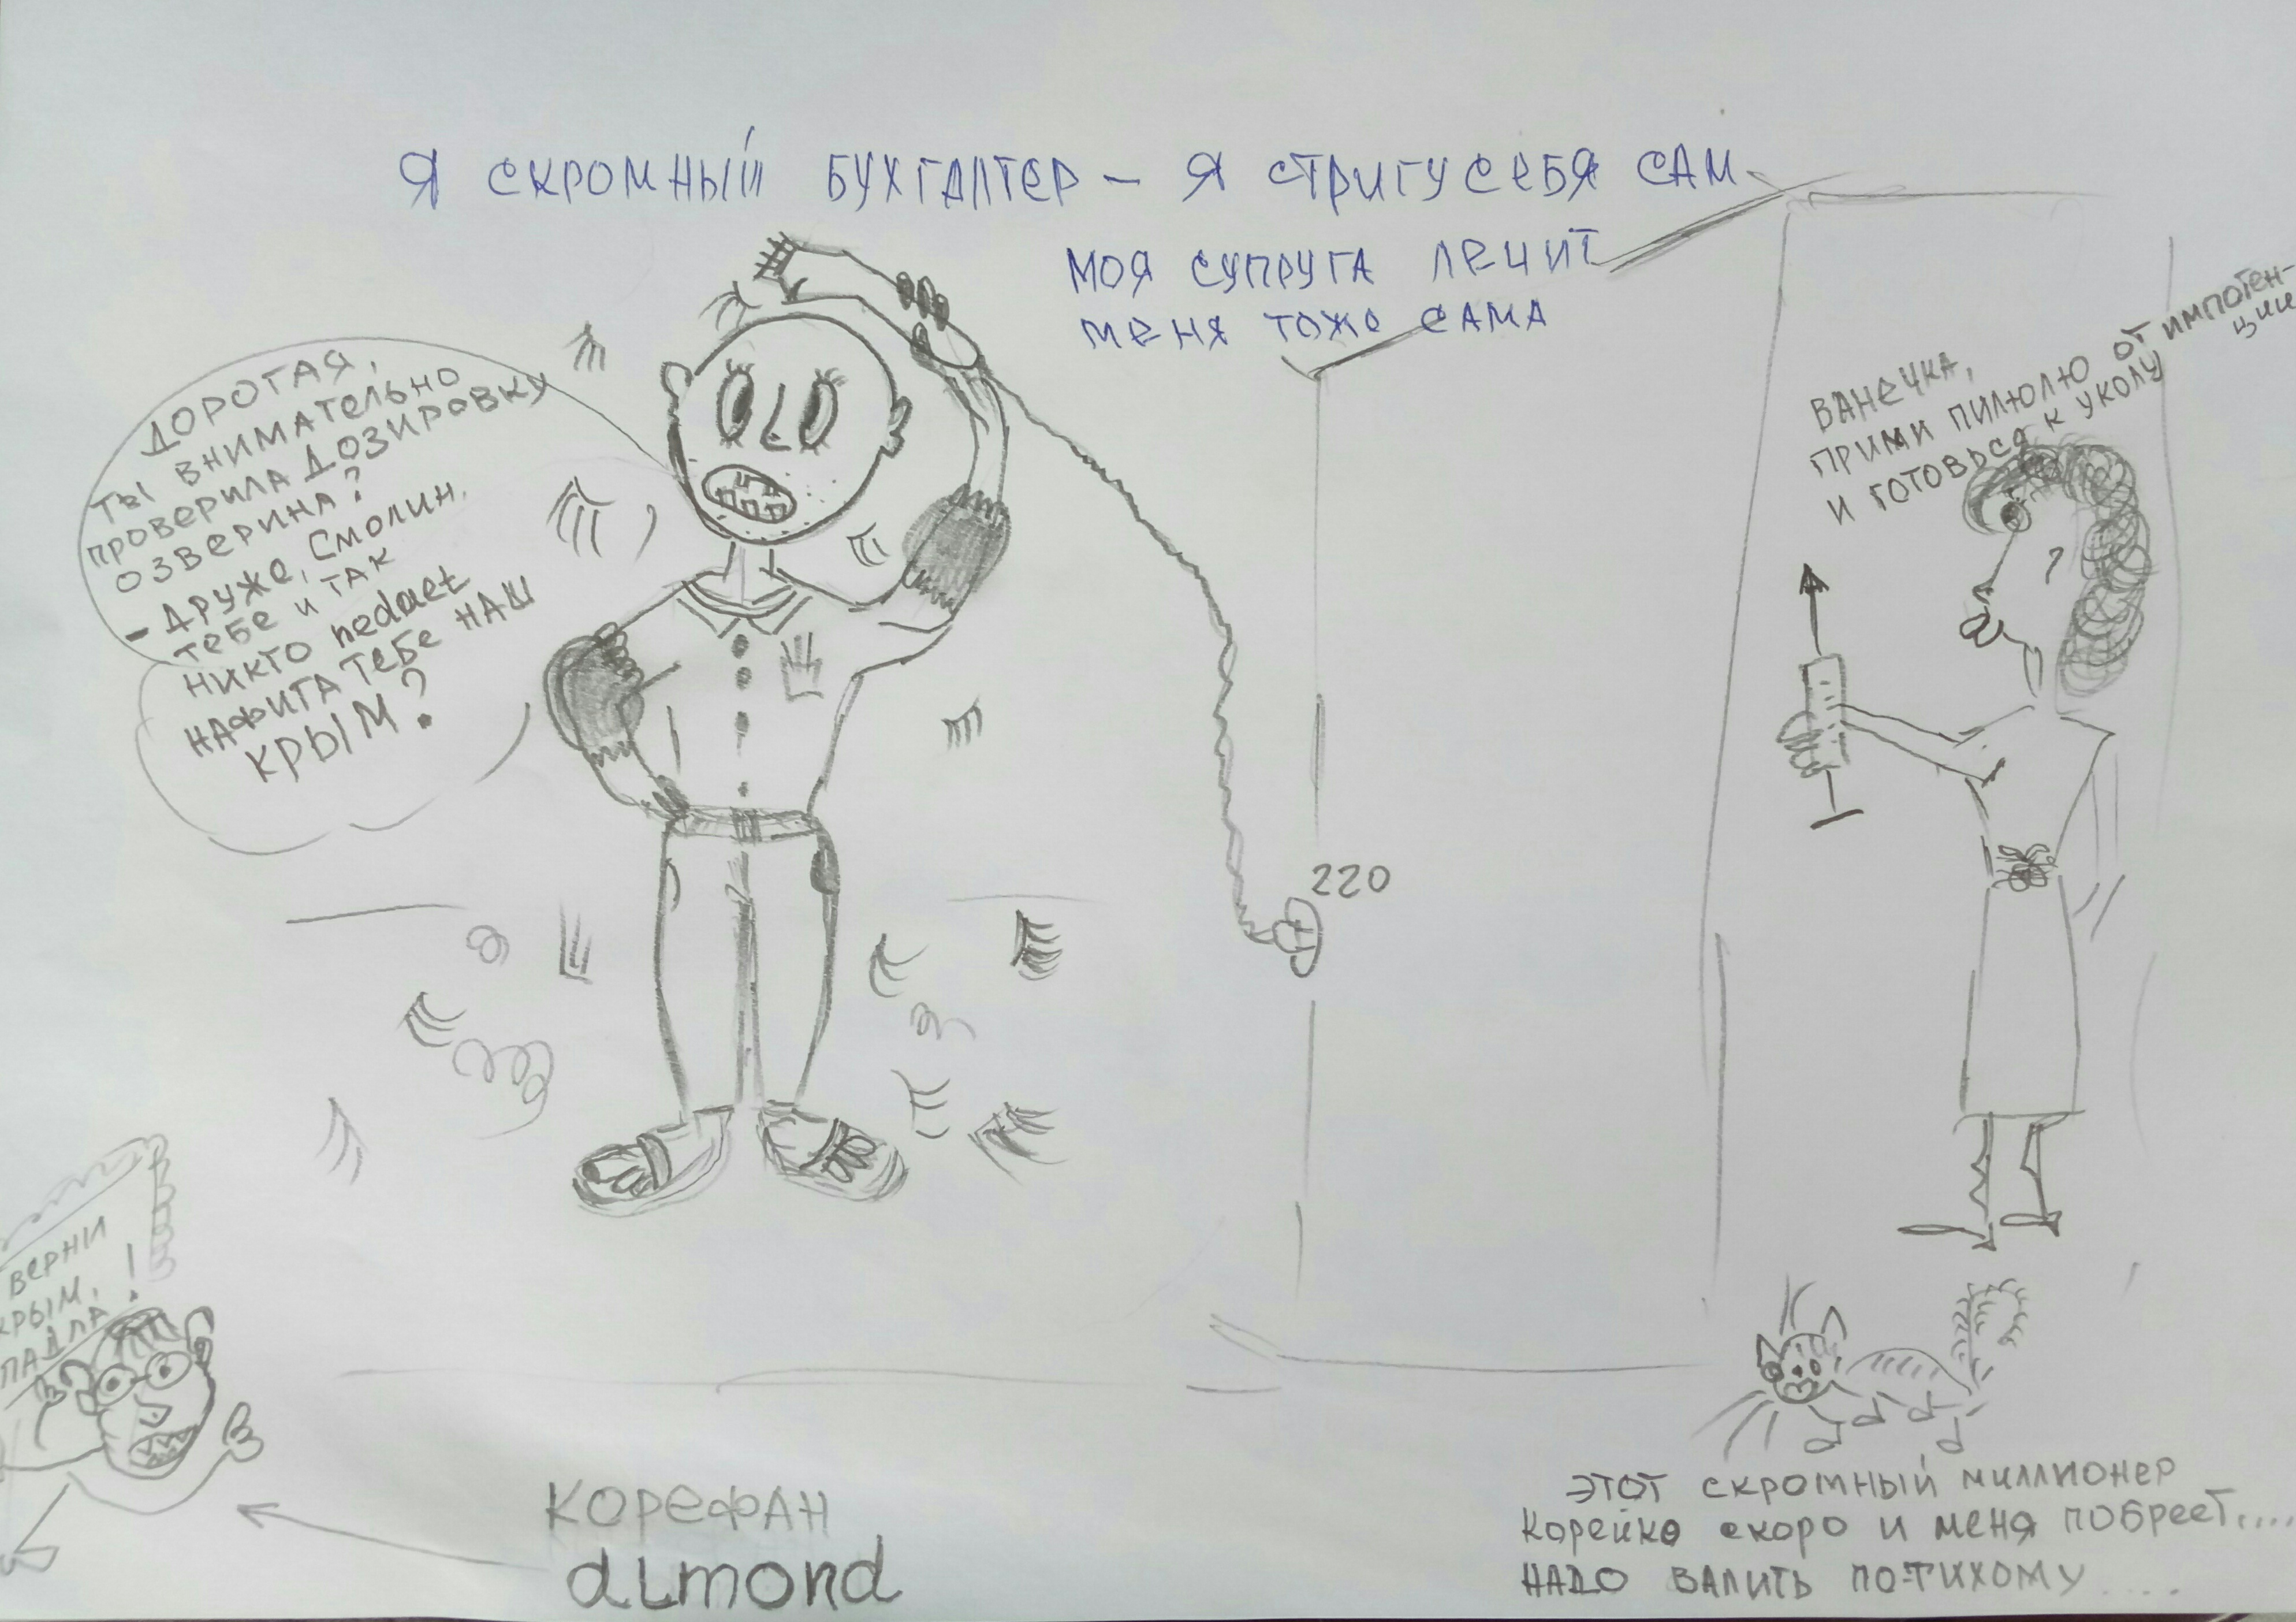 Я СКРОМНЫЙ БУХГАЛТЕР – Я СТРИГУ СЕБЯ САМ
МОЯ СУПРУГА ЛЕЧИТ
МЕНЯ ТОЖЕ САМА
ДОРОГАЯ,
ТЫ ВНИМАТЕЛЬНО
ПРОВЕРИЛА ДОЗИРОВКУ
ОЗВЕРИНА?
- ДРУЖЕ, СМОЛИН,
ТЕБЕ И ТАК
НИКТО nedaet
НАФИГА ТЕБЕ НАШ
КРЫМ?
ВАНЕЧКА,
ПРИМИ ПИЛЮЛЮ ОТ ИМПОТЕН-
ЦИИ
И ГОТОВЬСЯ К УКОЛУ
220
ВЕРНИ
КРЫМ,
ПАДЛА!
КОРЕФАН
aLmond
ЭТОТ СКРОМНЫЙ МИЛЛИОНЕР
КОРЕЙКО СКОРО И МЕНЯ ПОБРЕЕТ....
НАДО ВАЛИТЬ ПО-ТИХОМУ ....